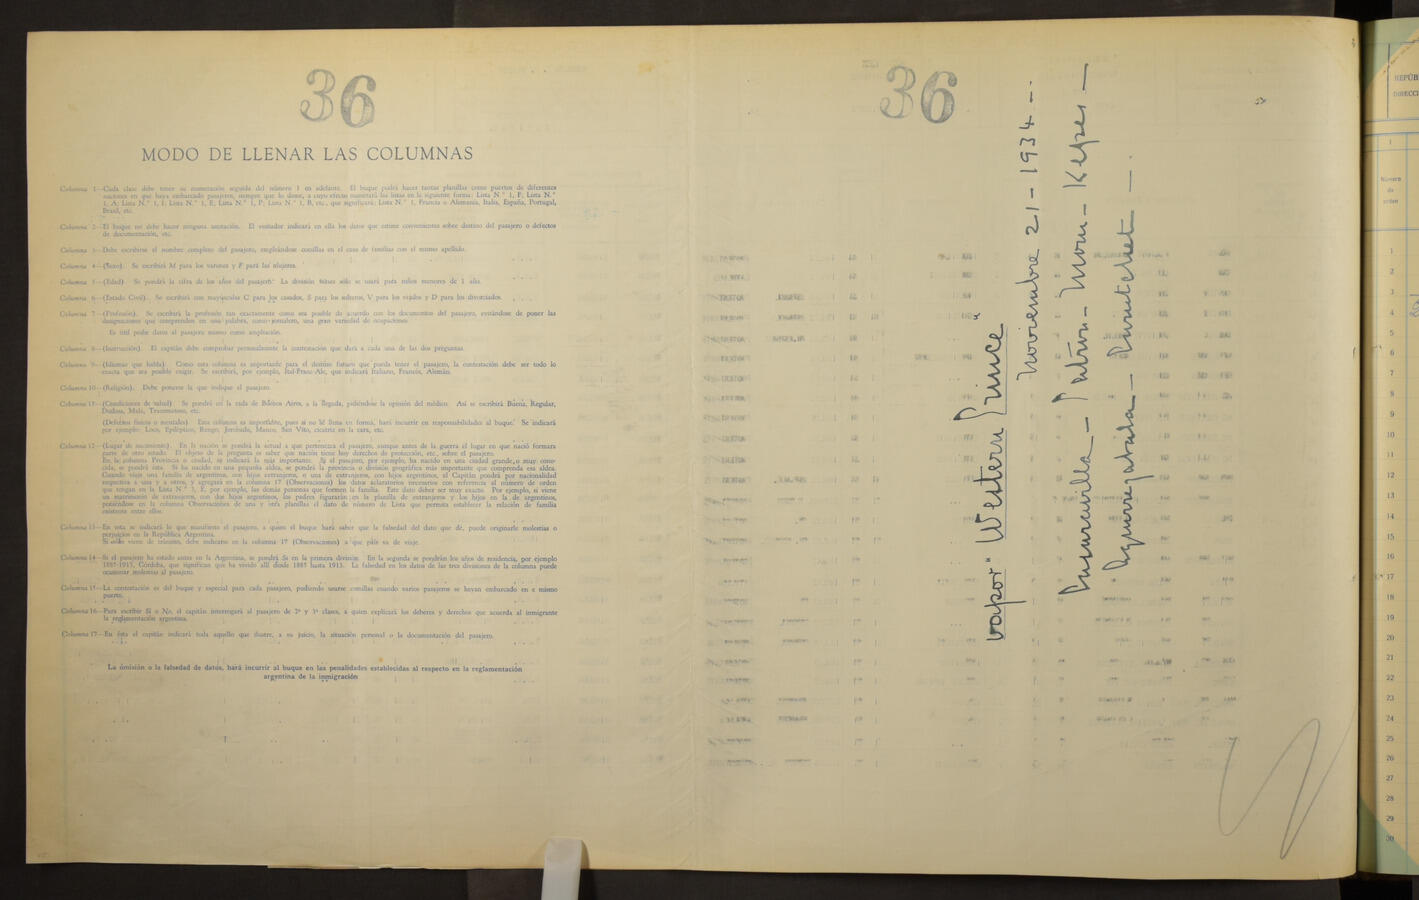 36
MODO DE LLENAR LAS COLUMNAS
Columna 1—Cada clase debe tener su numeración seguida del número 1 en adelante. El buque podrá hacer tantas planillas como puertos de diferentes
naciones en que haya embarcado pasajeros, siempre que lo desee, a cuyo efecto numerará las listas en la siguiente forma: Lista N.° 1, F; Lista N.°
1, A; Lista N.° 1, I; Lista N.° 1, E; Lista N.° 1, P; Lista N.° 1, B, etc., que significará: Lista N.° 1, Francia o Alemania, Italia, España, Portugal,
Brasil, etc.
Columna 2—El buque no debe hacer ninguna anotación. El visitador indicará en ella los datos que estime convenientes sobre destino del pasajero o defectos
de documentación, etc.
Columna 3—Debe escribirse el nombre completo del pasajero, empleándose comillas en el caso de familias con el mismo apellido.
Columna 4—(Sexo). Se escribirá M para los varones y F para las mujeres.
Columna 5—(Edad) Se pondrá la cifra de los años del pasajero. La división meses sólo se usará para niños menores de 1 año.
Columna 6—(Estado Civil). Se escribirá con mayúsculas C para los casados, S para los solteros, V para los viudos y D para los divorciados.
Columna 7—(Profesión). Se escribirá la profesión tan exactamente como sea posible de acuerdo con los documentos del pasajero, evitándose de poner las
designaciones que comprenden en una palabra, como jornalero, una gran variedad de ocupaciones.
Es útil pedir datos al pasajero mismo como ampliación.
Columna 8—(Instrucción). El capitán debe comprobar personalmente la contestación que dará a cada una de las dos preguntas.
Columna 9—(Idiomas que habla) Como esta columna es importante para el destino futuro que pueda tener el pasajero, la contestación debe ser todo lo
exacta que sea posible exigir. Se escribirá, por ejemplo, Ital-Franc-Ale, que indicará Italiano, Francés, Alemán.
Columna 10—(Religión). Debe ponerse la que indique el pasajero.
Columna 11—(Condiciones de salud) Se pondrá en la rada de Buenos Aires, a la llegada, pidiéndose la opinión del médico. Así se escribirá Buena, Regular,
Dudosa, Mala, Tracomatoso, etc.
(Defectos físicos o mentales) Esta columna es importante, pues si no se llena en forma, hará incurrir en responsabilidades al buque. Se indicará
por ejemplo: Loco, Epiléptico, Rengo, Jorobado, Manco, San Vito, cicatriz en la cara, etc.
Columna 12—(Lugar de nacimiento). En la nación se pondrá la actual a que pertenezca el pasajero, aunque antes de la guerra el lugar en que nació formara
parte de otro estado. El objeto de la pregunta es saber que nación tiene hoy derechos de protección, etc., sobre el pasajero.
En la columna Provincia o ciudad, se indicará la más importante. Si el pasajero, por ejemplo, ha nacido en una ciudad grande o muy cono-
cida, se pondrá ésta. Si ha nacido en una pequeña aldea, se pondrá la provincia o división geográfica más importante que comprenda esa aldea.
Cuando viaje una familia de argentinos, con hijos extranjeros, o una de extranjeros, con hijos argentinos, el Capitán pondrá por nacionalidad
respectiva a una y a otros, y agregará en la columna 17 (Observaciones) los datos aclaratorios necesarios con referencia al número de orden
que tengan en la Lista N.° 3, E, por ejemplo, las demás personas que formen la familia. Este dato deber ser muy exacto. Por ejemplo, si viene
un matrimonio de extranjeros, con dos hijos argentinos, los padres figurarán en la planilla de extranjeros y los hijos en la de argentinos,
poniéndose en la columna Observaciones de una y otra planillas el dato de número de Lista que permita establecer la relación de familia
existente entre ellos.
Columna 13—En esta se indicará lo que manifieste el pasajero, a quien el buque hará saber que la falsedad del dato que dé, puede originarle molestias o
perjuicios en la República Argentina.
Si sólo viene de tránsito, debe indicarse en la columna 17 (Observaciones) a que país va de viaje.
Columna 14—Si el pasajero ha estado antes en la Argentina, se pondrá Si en la primera división. En la segunda se pondrán los años de residencia, por ejemplo
1885-1915, Córdoba, que significan que ha vivido allí desde 1885 hasta 1915. La falsedad en los datos de las tres divisiones de la columna puede
ocasionar molestias al pasajero.
Columna 15—La contestación es del buque y especial para cada pasajero, pudiendo usarse comillas cuando varios pasajeros se hayan embarcado en el mismo
puerto.
Columna 16—Para escribir Si o No, el capitán interrogará al pasajero de 2ª y 3ª clases, a quien explicará los deberes y derechos que acuerda al inmigrante
la reglamentación argentina.
Columna 17—En ésta el capitán indicará toda aquello que ilustre, a su juicio, la situación personal o la documentación del pasajero.
La omisión o la falsedad de datos, hará incurrir al buque en las penalidades establecidas al respecto en la reglamentación
argentina de la inmigración
36
vapor "Western Prince"
Noviembre 21 - 1934 --
REPÚB
DIRECCI
1
Número
de
orden
1
2
3
4
5
6
7
8
9
10
11
12
13
14
15
16
17
18
19
20
21
22
23
24
25
26
27
28
29
30